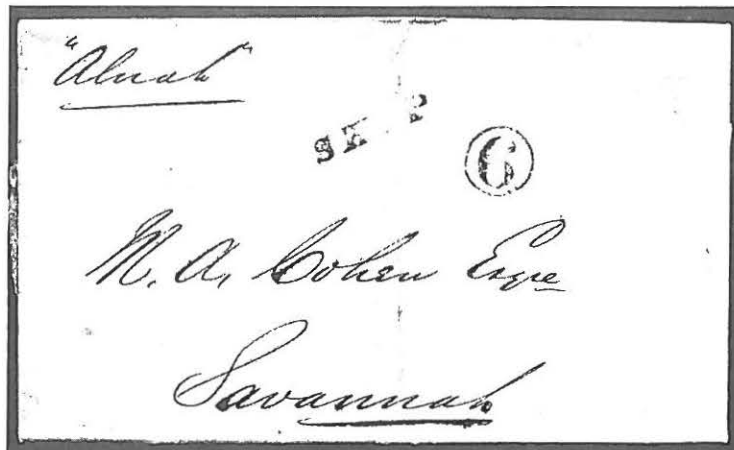 "Alnah"
SHIP
6
M. A. Cohen Esqre
Savannah